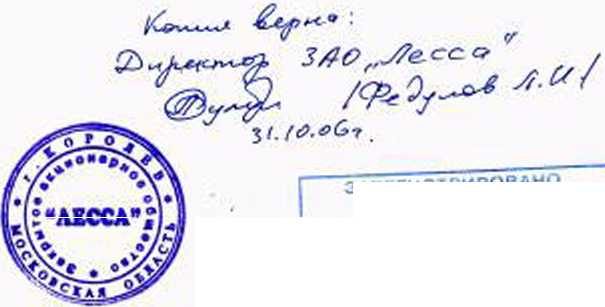 Копия верна:
Директор ЗАО „Лесса"
/Федулов Л.И/
31.10.06г.
г. КОРОЛЕВ
МОСКОВСКАЯ ОБЛАСТЬ
Закрытое акционерное общество
“ЛЕССА”